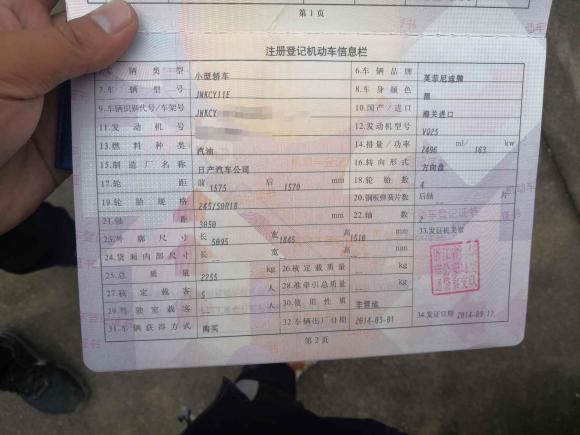 第 1 页
注册登记机动车信息栏
5.车辆类型 小型轿车 6.车辆品牌 英菲尼迪牌
7.车辆型号 JNKCY11E 8.车身颜色 黑
9.车辆识别代号/车架号 JNKCY 10.国产/进口 海关进口
11.发动机号 12.发动机型号 VQ25
13.燃料种类 汽油 14.排量/功率 2496 ml/ 163 kw
15.制造厂名称 日产汽车公司 16.转向形式 方向盘
17.轮距 前 1575 后 1570 mm 18.轮胎数 4
19.轮胎规格 245/50R18 20.钢板弹簧片数 后轴 片
21.轴距 3050 mm 22.轴数 2
23.外廓尺寸 长 5095 宽 1845 高 1510 mm 33.发证机关章
24.货厢内部尺寸 长 宽 高 mm
25.总质量 2255 kg 26.核定载质量 kg
27.核定载客 5 人 28.准牵引总质量 kg
29.驾驶室载客 人 30.使用性质 非营运
31.车辆获得方式 购买 32.车辆出厂日期 2014-03-01 34.发证日期 2014-09-11
第 2 页